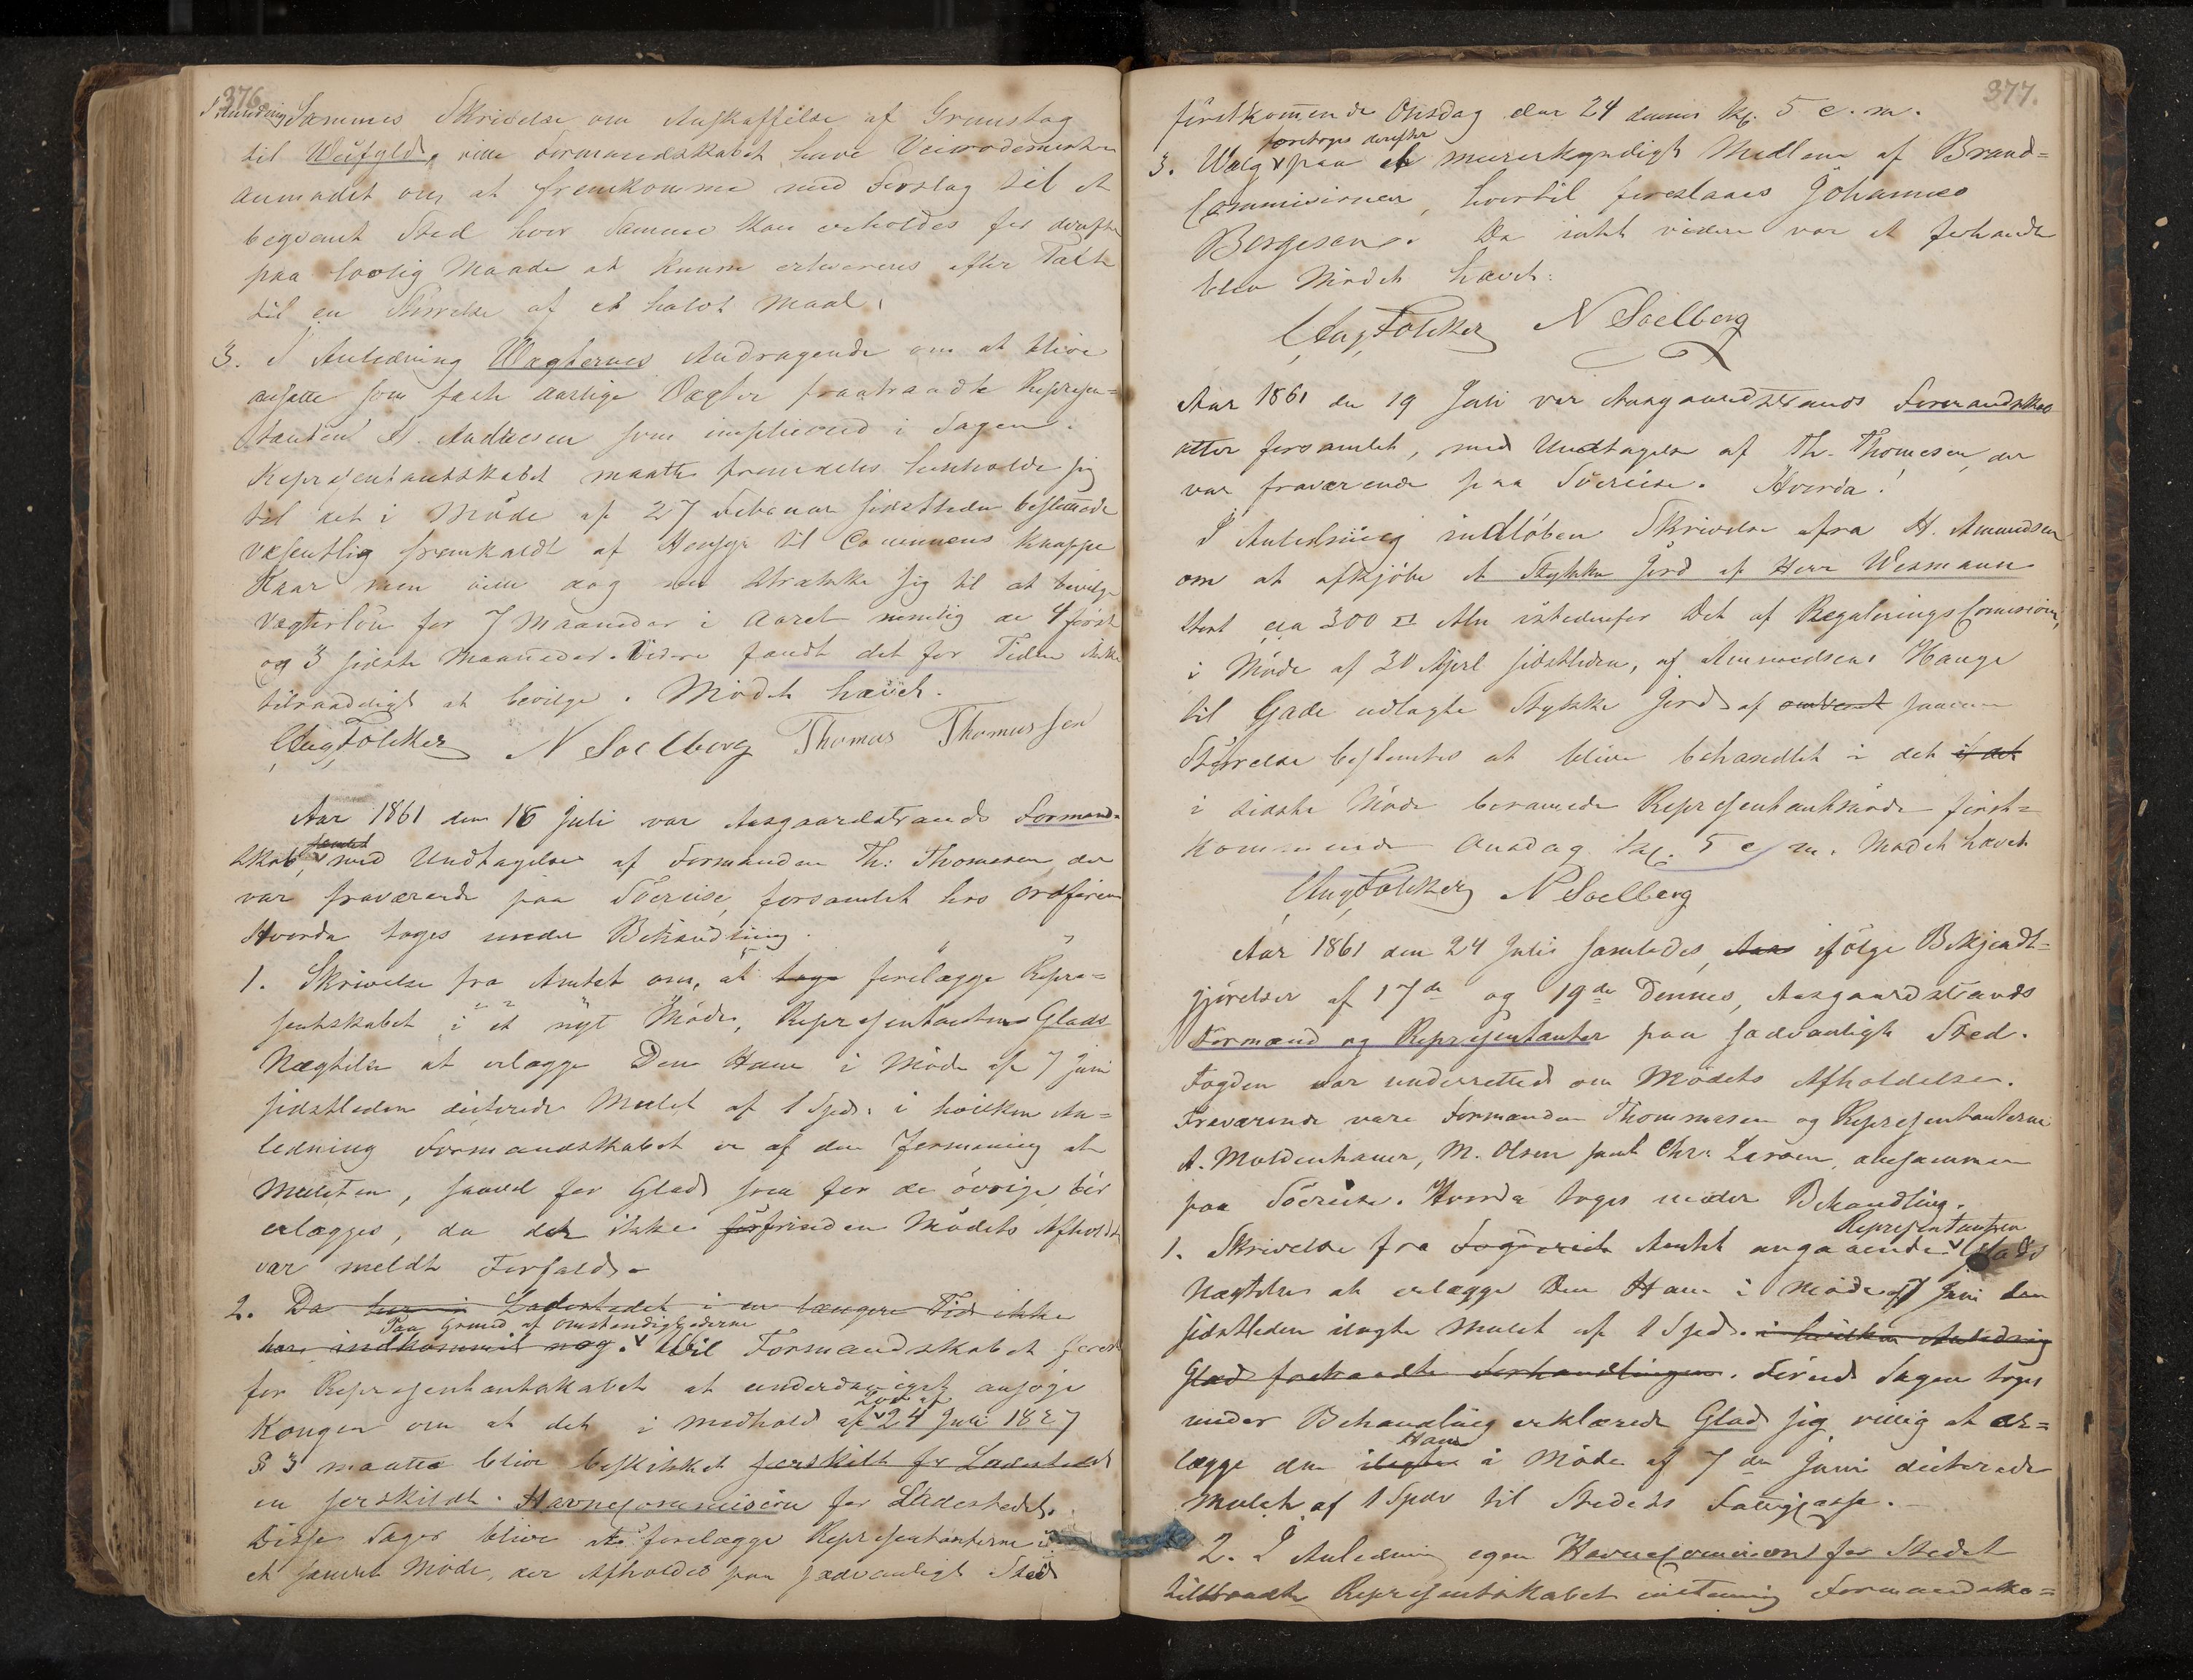 376.
Sammes Skrivelse om Anskaffelse af Grunstag
til Veifyld, ville Formandskabet have Veirodemester
anmodet om, at fremkomme med Forslag til et
beqvemt Sted hvor Samme kan erholdes for derefter
paa lovlig Maade at kunne erhverves efter Taxt
til en Størrelse af et halvt Maal.
3. I Anledning Vægternes Andragende om at blive
ansatte som faste aarlige Vægter fraatraadte Represen=
tanten A. Andresen som implicered i Sagen.
Representantskabet maatte fremdeles henholde sig
til det i Møde af 27 Februar sidstleden bestemmede
væsentlig fremkaldt af Hensyn til Communens knappe
Kaar men vill dog nu strække sig til at bevilge
Vægterløn for 7 Maaneder i Aaret nemlig de 4 først
og 3 sidste Maaneder. Videre fandt det for Tiden ikke
tilraadeligt at bevilge. Mødet hævet.
Aug Folcker N Soelberg Thomas Thomassen
Aar 1861 den 16 Juli var Aasgaardstrands Formand=
skab, med Undtagelse af Formanden Th: Thomesen der
var fraværende paa Søereise, forsamlet hos Ordføreren
Hvorda toges under Behandling.
1. Skrivelse fra Amtet om, at tage forelægge Repre=
sentskabet i et nyt Møde, Representanten Glads
Nægtelse at erlægge Den Ham i Møde af 7 Juni
sidstleden dicterede Mulct af 1 Spd. i hvilken An=
ledning Formandskabet er af den Formening at
Mulcten, saavel for Glad som for de øvrige bør
erlægges, da der ikke før forinden Mødets Afholdelse
var meldt Forfald.
2. Da her i Ladestedet i en længere Tid ikke
Paa Grund af Omstændighederne
har indkommit nog. Vil Formandskabet foreslaa
for Representantskabet at underdanigst ansøge
Lov af
Kongen om at det i medhold af 24 Juli 1827
§ 3 maatte blive beskikket særskilt for Ladestedet
en særskildt Havnecommission for Ladestedet.
Disse Sager blive at forelægge Representanterne i
et samlet Møde, der Afholdes paa sædvanligt Sted
377.
førstkommende Onsdag den 24 dennes kl. 5 e. m.
foretoges derefter
3. Valg paa et murerkyndigt Medlem af Brand=
Commisionen, hvortil foreslaaes Johannes
Borgesen. Da intet videre var at forhandle
blev Mødet hævet.
Aug Folcker N Soelberg
Aar 1861 den 19 Juli var Aasgaardstrands Formandskab
atter forsamlet, med Undtagelse af Th. Thomesen, der
var fraværende paa Søereise. Hvorda!
I Anledning indløben Skrivelse fra H. Amundsen
om at afkjøbe et Stykke Jord af Herr Wesmann
stort cca 300 □ Aln istedenfor Det af Regulerings Comision,
i Møde af 30 April sidstleden, af Amundsens Hauge
til Gade udlagte Stykke Jord af omtrent samme
Størrelse bestemtes at blive behandlet i det i det
i sidste Møde beramede Representantmøde først=
kommende Onsdag kl. 5 e m. Mødet hævet
Aug Folcker N Soelberg
Aar 1861 den 24 Juli samledes Aas ifølge Bekjendt=
gjørelser af 17de og 19de Dennes, Aasgaardstrands
Formænd og Representanter paa sædvanligt Sted.
Fogden var underrettet om Mødets Afholdelse.
Fraværende vare Formanden Thommesen og Representanterne
A. Moldenhauer, M. Olsen samt Chr. Larsen, allesammen
paa Søereise. Hvorda toges under Behandling.
Representanten
1. Skrivelse fra Fogderiet Amtet angaaende Glads
Nægtelse at erlægge Den Ham i Møde af 7 Juni den
sidstleden ilagte Mulct af 1 Spd. i hvilken Anledning
Glad fratraadte Forhandlingen. Førend Sagen toges
under Behandling erklærede Glad sig villig at er=
Ham
lægge den ilagte i Møde af 7 de Juni dicterede
Mulct af 1 Spdr til Stedets Fattigcasse.
2. I Anledning egen Havnecommision for Stedet
tiltraadte Representskabet enstemig Formandska=